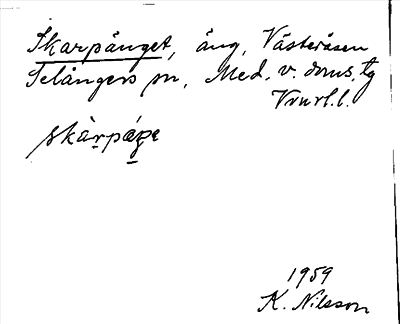 Skarpänget, äng, Västeråsen
Selångers sn, Med. v. doms. tg
Vrurl.l.
skàrpáŋe
1959
K. Nilsson